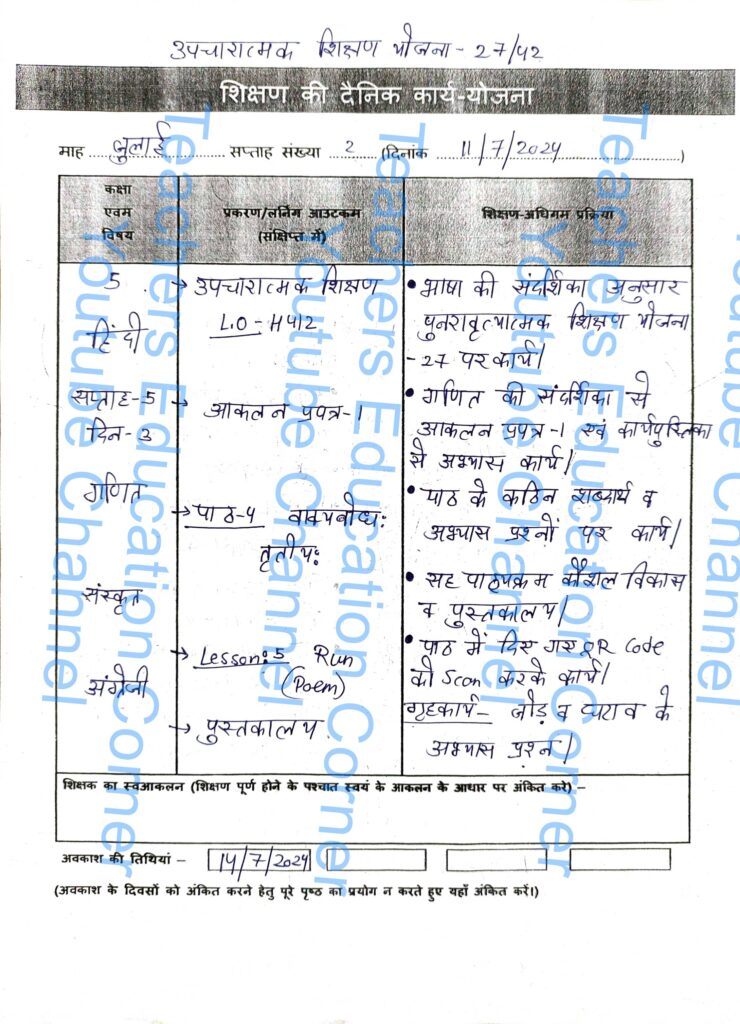 उपचारात्मक शिक्षण योजना - 27/42
शिक्षण की दैनिक कार्य-योजना
माह जुलाई सप्ताह संख्या 2 (दिनांक 11/7/2024)
कक्षा
एवम
विषय
प्रकरण/लर्निंग आउटकम
(संक्षिप्त में)
शिक्षण-अधिगम प्रक्रिया
5
हिंदी
सप्ताह-5
दिन-3
गणित
संस्कृत
अंग्रेजी
→ उपचारात्मक शिक्षण
L.O - H412
→ आकलन प्रपत्र-1
→ पाठ-4 वाक्यबोधः
तृतीयः
→ Lesson:5 Run
(Poem)
→ पुस्तकालय
• भाषा की संदर्शिका अनुसार
पुनरावृत्यात्मक शिक्षण योजना
- 27 पर कार्य।
• गणित की संदर्शिका से
आकलन प्रपत्र-1 एवं कार्यपुस्तिका
से अभ्यास कार्य।
• पाठ के कठिन शब्दार्थ व
अभ्यास प्रश्नों पर कार्य।
• सह पाठ्यक्रम कौशल विकास
व पुस्तकालय।
• पाठ में दिए गए QR Code
को Scan करके कार्य।
गृहकार्य - जोड़ व घटाव के
अभ्यास प्रश्न।
शिक्षक का स्वआकलन (शिक्षण पूर्ण होने के पश्चात स्वयं के आकलन के आधार पर अंकित करे) –
अवकाश की तिथियां – 14/7/2024
(अवकाश के दिवसों को अंकित करने हेतु पूरे पृष्ठ का प्रयोग न करते हुए यहाँ अंकित करें।)
Teachers Education Corner
Youtube Channel
Teachers Education Corner
Youtube Channel
Teachers Education Corner
Youtube Channel
Youtube Channel